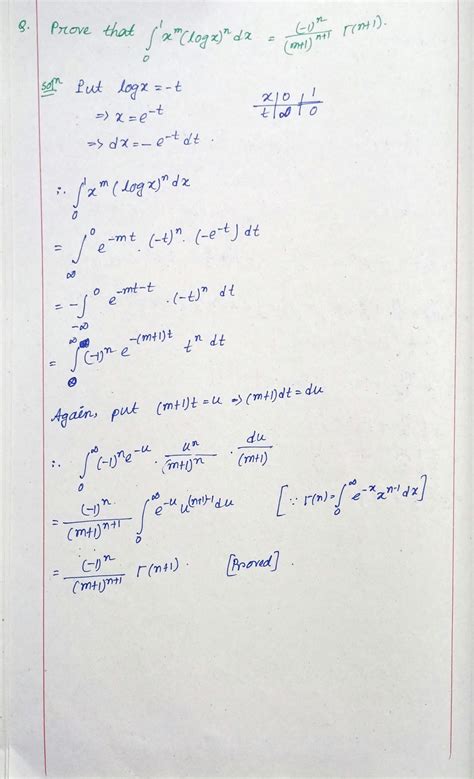 Q. Prove that ∫₀¹ xᵐ(logx)ⁿ dx = (-1)ⁿ/(m+1)ⁿ⁺¹ Γ(n+1).
Solⁿ Put logx = -t
x | 0 | 1
t | ∞ | 0
⇒ x = e⁻ᵗ
⇒ dx = -e⁻ᵗ dt.
∴ ∫₀¹ xᵐ (logx)ⁿ dx
= ∫_∞^0 e^{-mt} · (-t)ⁿ · (-e^{-t}) dt
= -∫_{-∞}^0 e^{-mt-t} · (-t)ⁿ dt
= ∫_0^∞ (-1)ⁿ e^{-(m+1)t} tⁿ dt
Again, put (m+1)t = u ⇒ (m+1)dt = du
∴ ∫_0^∞ (-1)ⁿ e^{-u} · uⁿ/(m+1)ⁿ · du/(m+1)
= (-1)ⁿ/(m+1)ⁿ⁺¹ ∫_0^∞ e^{-u} u^{(n+1)-1} du [∵ Γ(n) = ∫_0^∞ e^{-x} x^{n-1} dx]
= (-1)ⁿ/(m+1)ⁿ⁺¹ Γ(n+1). [Proved].